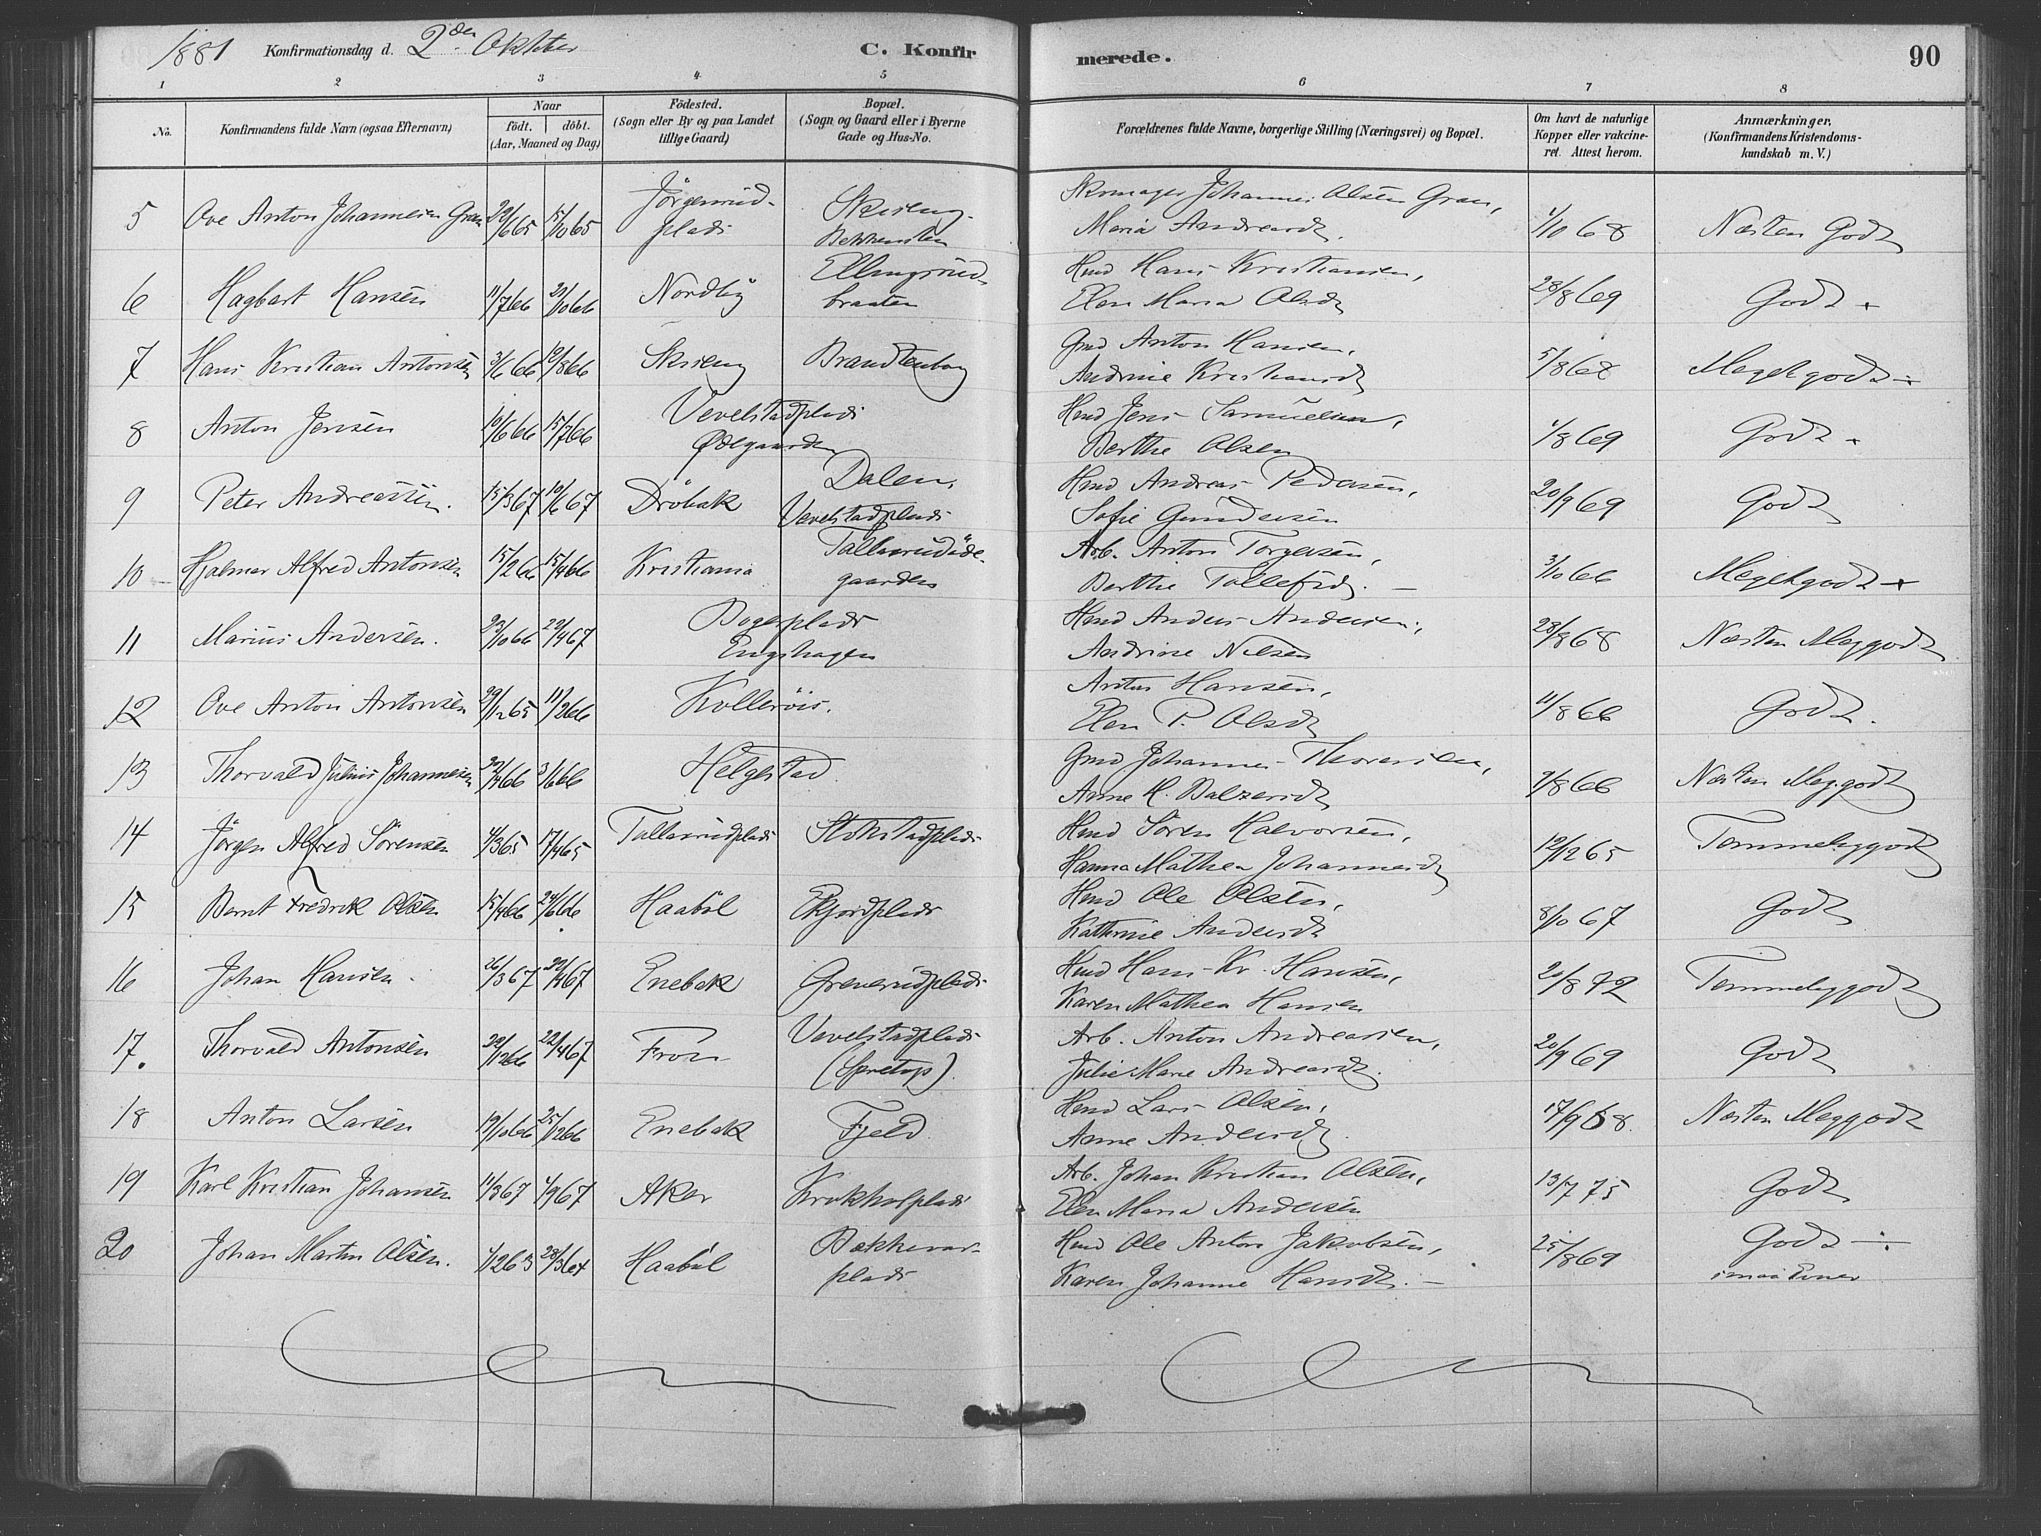 1881 Konfirmationsdag d. 2den Oktober C. Konfirmerede. 90
1 2 3 4 5 6 7 8
No. Konfirmandens fulde Navn (ogsaa Efternavn) Naar födt. döbt. (Aar, Maaned og Dag) Födested. (Sogn eller By og paa Landet tillige Gaard) Bopæl. (Sogn og Gaard eller i Byerne Gade og Hus-No. Forældrenes fulde Navne, borgerlige Stilling (Næringsvei) og Bopæl. Om havt de naturlige Kopper eller vakcineret. Attest herom. Anmærkninger, (Konfirmandens Kristendomskundskab m. V.)
5 Ove Anton Johannesen Gran 29/6 65 15/10 65 Jörgensrudplads Skieeng Bekkensten Skomager Johannes Olsen Gran, Maria Andreasdt. 1/10 68 Næsten Godt
6 Hagbart Hansen 11/7 66 21/10 66 Nordby Ellingsrudbraaten Hmd Hans Kristiansen, Elen Maria Olsdt 28/8 69 Godt
7 Hans Kristian Antonsen 3/6 66 12/8 66 Skieeng Brandtenborg Gmd Anton Hansen, Andrine Kristiansdt 5/8 68 Megetgodt
8 Anton Jensen 10/6 66 15/7 66 Vevelstadplads Ødegaarden Hmd Jens Samuelsen, Berthe Olsen 1/8 69 Godt
9 Peter Andreassen. 15/3 67 10/6 67 Dröbak Dalen, Vevelstadplads Hmd Andreas Pedersen, Sofie Gundersen 20/9 69 Godt
10 Hjalmar Alfred Antonsen 15/2 66 15/4 66 Kristiania Tallausrudödegaarden Arb. Anton Torgersen, Berthe Tollefsd. 3/10 66 Megetgodt
11 Marius Andersen. 23/10 66 22/4 67 Bøgerplads Engshagen Hmd Anders Andersen, Andrine Nilsen 28/8 68 Næsten Meggodt
12 Ove Anton Antonsen 29/12 65 11/2 66 Kolleröis. Anton Hansen, Elen P. Olsdt 11/8 66 Godt.
13 Thorvald Julius Johannesen 30/4 66 3/6 66 Helgestad Gmd Johannes Thoresen, Anne M. Balzersdt 7/8 66 Næsten Meg.godt
14 Jörgen Alfred Sörensen 4/3 65 17/4 65 Tallausrudplads Stokstadplads Hmd Sören Halvorsen, Hanna Mathea Johannesdt 12/12 65 Temmeliggodt
15 Bernt Fredrik Olsen 15/4 66 24/6 66 Haaböl Ekjordplads Hmd Ole Olsen, Kathrine Andersdt 8/10 67 Godt
16 Johan Hansen. 26/3 67 22/4 67 Enebak Greverudplads Hmd Hans Kr. Hansen, Karen Mathea Hansen 20/8 72 Temmeliggodt
17. Thorvald Antonsen 29/12 66 22/4 67 Fron Vevelstadplads (Spretop). Arb. Anton Andreassen, Julie Marie Andreasdt. 20/9 69 Godt
18 Anton Larsen 19/10 66 25/12 66 Enebak Fjeld Hmd Lars Olsen, Anne Andersdt. 17/9 68. Næsten Meggodt
19 Karl Kristian Johansen 11/3 67 1/9 67 Aker Krokholplads Arb. Johan Kristian Olsen, Elen Maria Andersen 13/7 75 Godt
20 Johan Martin Olsen. 1/12 63 28/3 64 Haaböl Bakkevarplads Hmd Ole Anton Jakobsen, Karen Johanne Hansdt. 25/8 69 Godt smaa Evner